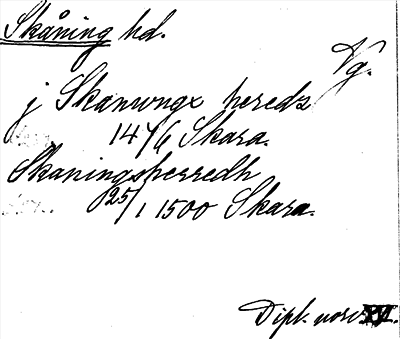 Skåning hd.
Vg.
j Skanungx heredz
14 4/6 Skara.
Skaningsherredh
25/1 1500 Skara.
Dipl. norv. XVI.